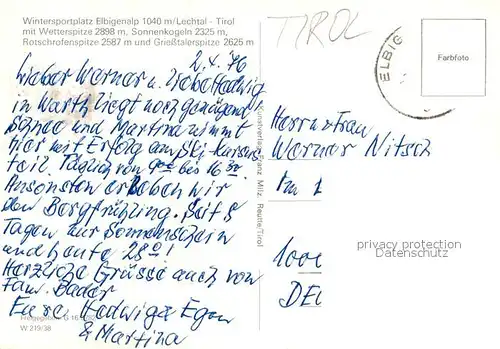 Wintersportplatz Elbigenalp 1040 m/Lechtal - Tirol
mit Wetterspitze 2898 m, Sonnenkogeln 2325 m,
Rotschrofenspitze 2587 m und Grießtalerspitze 2625 m
TIROL
ELBIG
Farbfoto
2.4.76
Lieber Werner u. liebe Hedwig
in Warth liegt noch genügend
Schnee und Martina nimmt
hier mit Erfolg am Ski-Kursus
teil. Täglich von 9 bis 16 30.
Ansonsten erleben wir
den Bergfrühling. Seit 8
Tagen nur Sonnenschein
und heute 28°!
Herzliche Grüsse auch von
Fam. Bader
Eure Hedwig & Egon
& Martina
W 219/38
Kunstverlag Franz Milz, Reutte/Tirol
Herrn u Frau
Werner Nitsch
Am
1000
privacy protection
Datenschutz